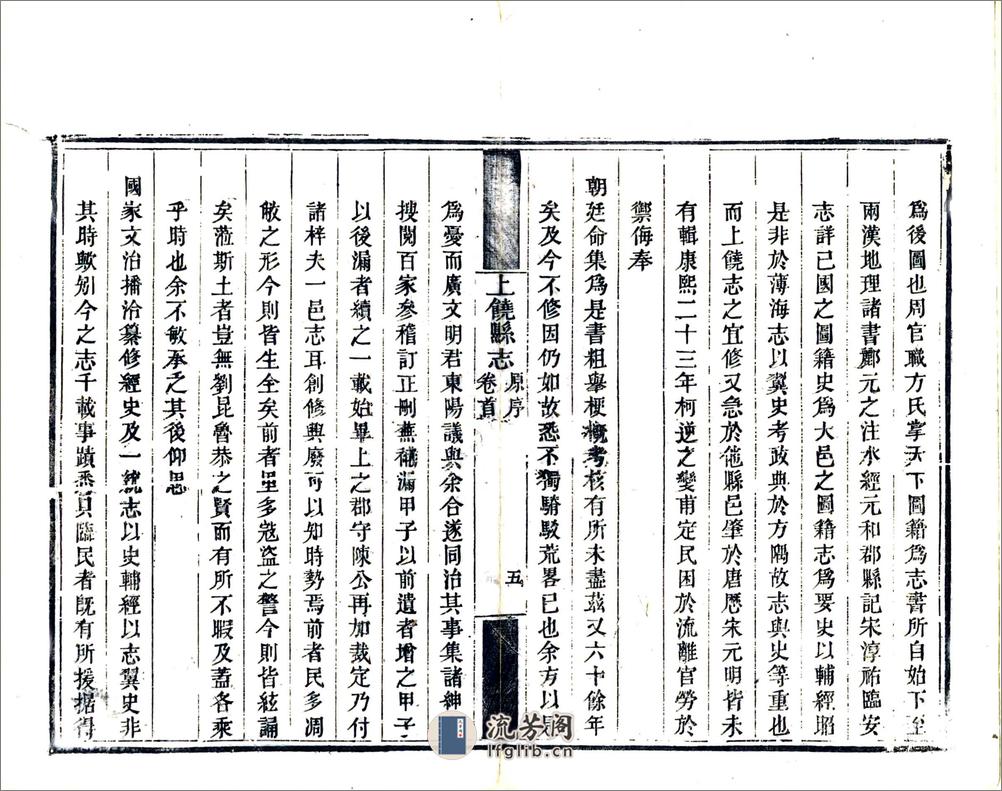 爲後圖也周官職方氏掌天下圖籍爲志書所自始下至
兩漢地理諸書酈元之注水經元和郡縣記宋淳祐臨安
志詳已國之圖籍史爲大邑之圖籍志爲要史以輔經昭
是非於薄海志以翼史考政典於方隅故志與史等重也
而上饒志之宜修又急於他縣邑肇於唐歷宋元明皆未
有輯康熙二十三年柯逆之變甫定民困於流離官勞於
禦侮奉
朝廷命集爲是書粗舉梗概考核有所未盡茲又六十餘年
矣及今不修因仍如故悉不獨騎駁荒畧已也余方以是
上饒縣志
原序
卷首
五
爲憂而廣文明君東陽議與余合遂同治其事集諸紳士
搜閱百家參稽訂正刪蕪補漏甲子以前遺者增之甲子
以後漏者續之一載始畢上之郡守陳公再加裁定乃付
諸梓夫一邑志耳創修興廢可以知時勢焉前者民多凋
敝之形今則皆生全矣前者里多寇盜之警今則皆絃誦
矣蒞斯土者豈無劉昆魯恭之賢而有所不暇及蓋各乘
乎時也余不敏承乏其後仰思
國家文治播洽纂修經史及一統志以史輔經以志翼史非
其時歟矧今之志千載事蹟悉具臨民者旣有所援据得
流芳阁
lfglib.cn